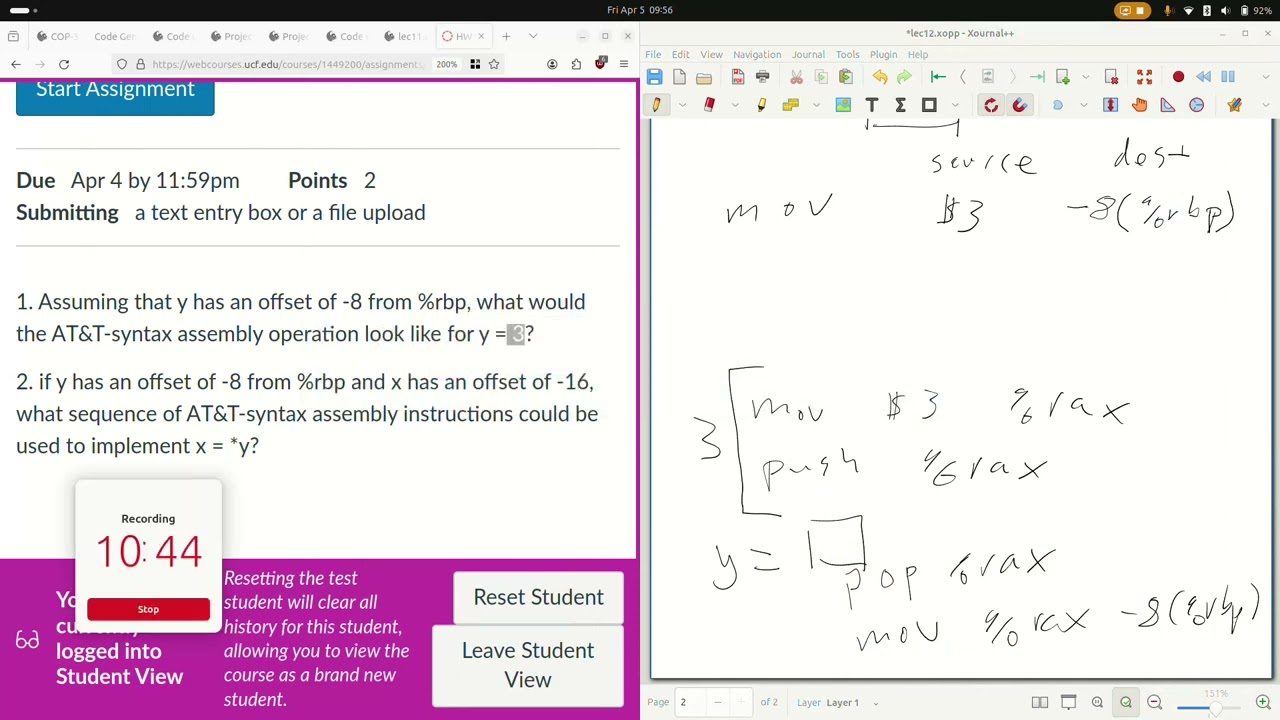 Fri Apr 5 09:56
92%
COP-3
Code Gen
Code
Projec
Projec
Code
lec11.
HW
https://webcourses.ucf.edu/courses/1449200/assignment
200%
Start Assignment
Due Apr 4 by 11:59pm Points 2
Submitting a text entry box or a file upload
1. Assuming that y has an offset of -8 from %rbp, what would
the AT&T-syntax assembly operation look like for y = 3?
2. if y has an offset of -8 from %rbp and x has an offset of -16,
what sequence of AT&T-syntax assembly instructions could be
used to implement x = *y?
Recording
10:44
Stop
logged into
Student View
Resetting the test
student will clear all
history for this student,
allowing you to view the
course as a brand new
student.
Reset Student
Leave Student
View
*lec12.xopp - Xournal++
File Edit View Navigate Journal Tools Plugin Help
source dest
mov $3 -8(%rbp)
3
mov $3 %rax
push %rax
y =
pop %rax
mov %rax -8(%rbp)
Page 2 of 2 Layer Layer 1
151%